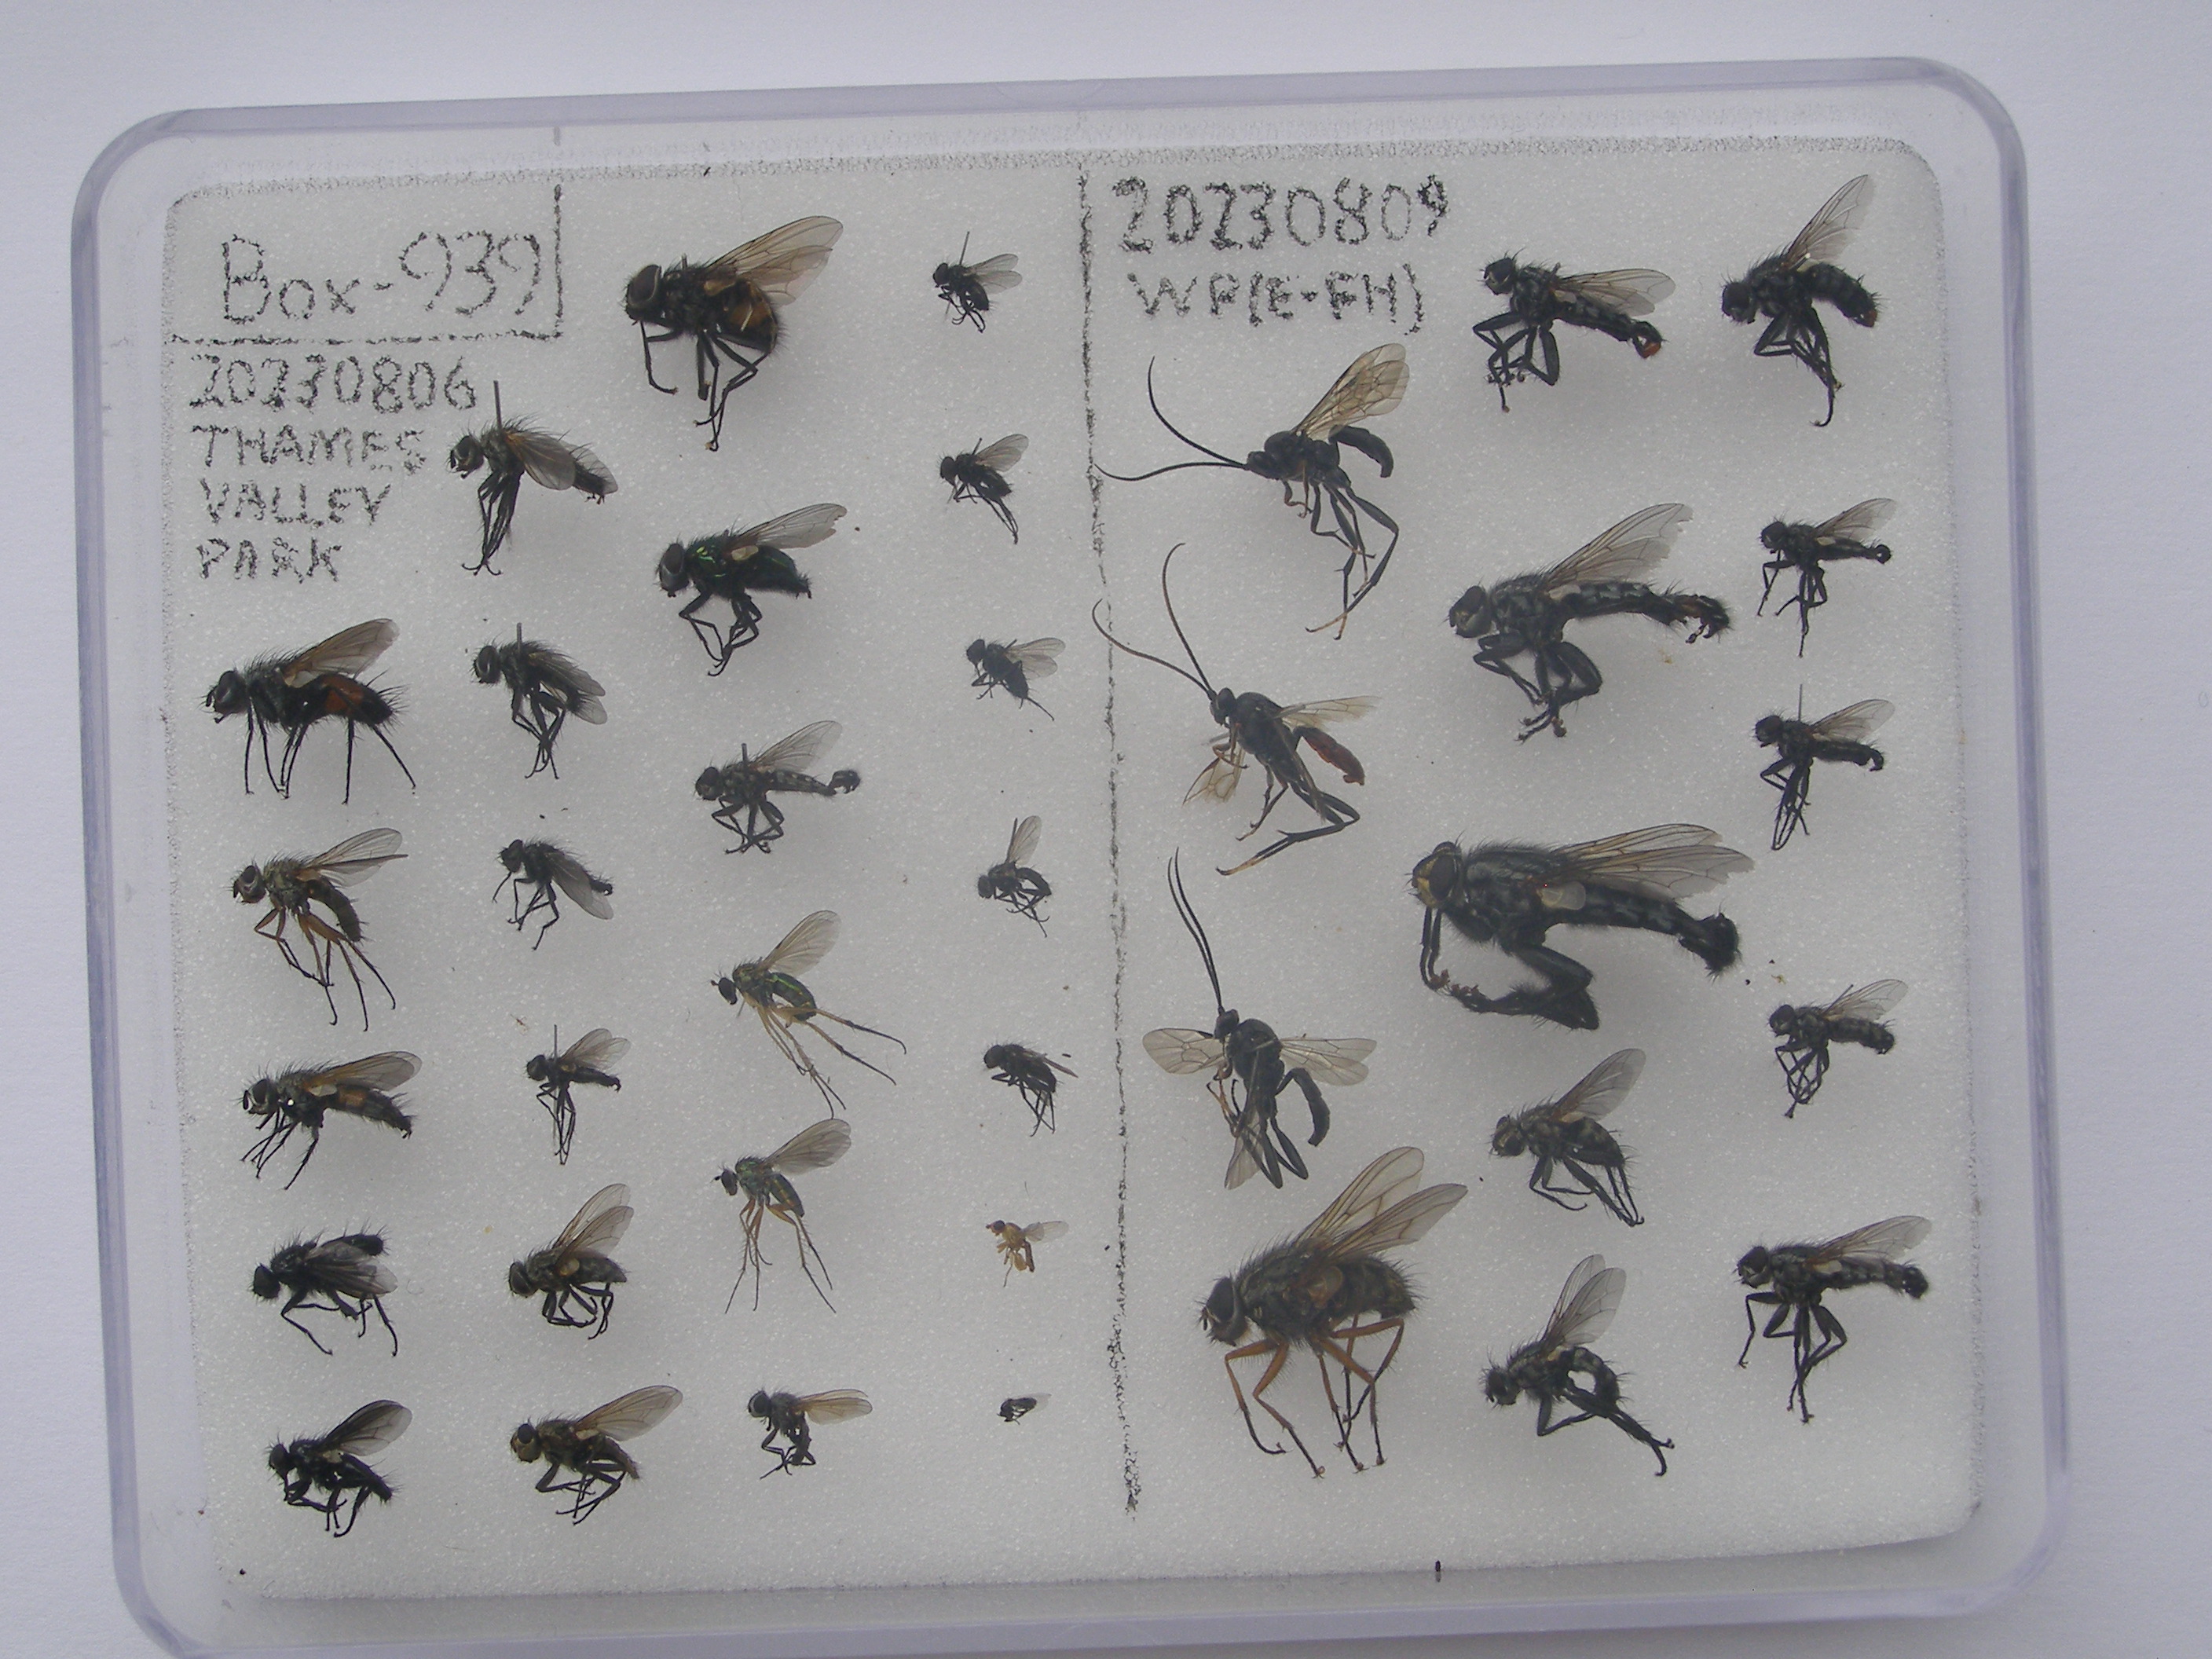 Box-939
20230806
THAMES
VALLEY
PARK
20230809
WP(E-FH)